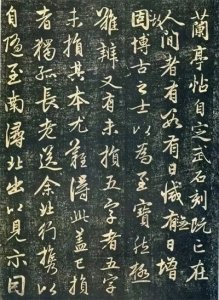 蘭亭帖自定武石刻既亡在
人間者有數有日減無日增
故博古之士以為至寶然極
難辨又有未損五字者五字
未損其本尤難得此蓋已損
者獨孤長老送余北行攜以
自隨至南潯北出以見示因